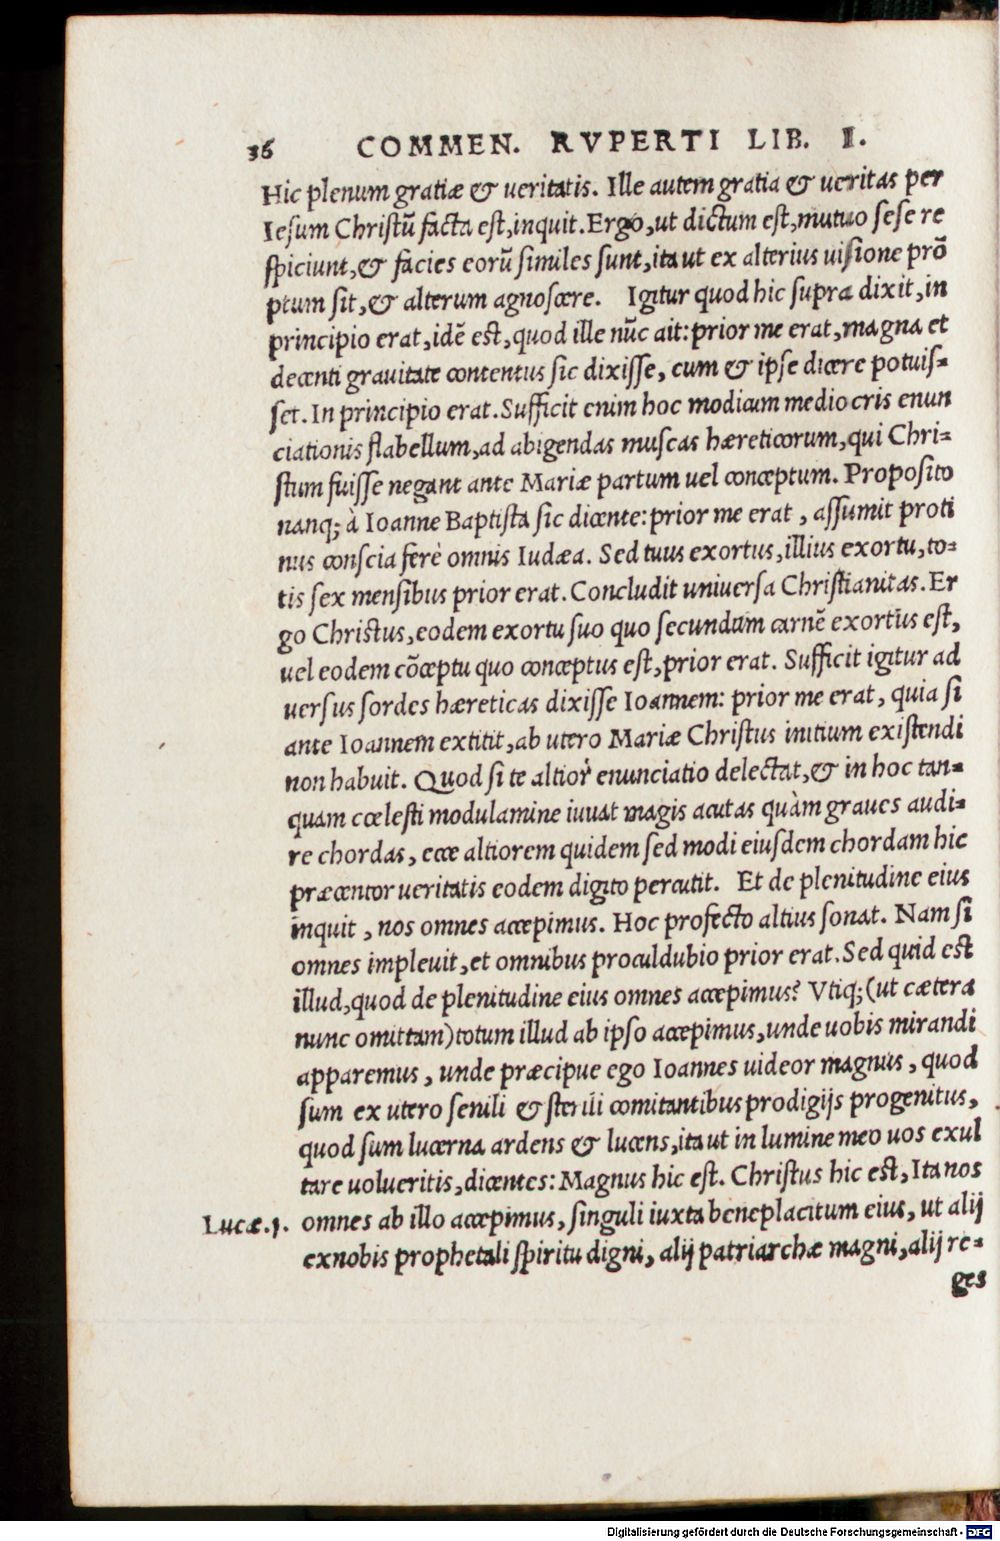 36 COMMEN. RVPERTI LIB. I.
Hic plenum gratiæ & ueritatis. Ille autem gratia & ueritas per
Iesum Christũ facta est, inquit. Ergo, ut dictum est, mutuo sese re
spiciunt, & facies eorũ similes sunt, ita ut ex alterius uisione prõ
ptum sit, & alterum agnoscere. Igitur quod hic supra dixit, in
principio erat, idẽ est, quod ille nũc ait: prior me erat, magna et
decenti grauitate contentus sic dixisse, cum & ipse dicere potuis=
set. In principio erat. Sufficit enim hoc modicum mediocris enun
ciationis flabellum, ad abigendas muscas hæreticorum, qui Chri=
stum fuisse negant ante Mariæ partum uel conceptum. Proposito
nanq; à Ioanne Baptista sic dicente: prior me erat, assumit proti
nus conscia ferè omnis Iudæa. Sed tuus exortus, illius exortu, to=
tis sex mensibus prior erat. Concludit uniuersa Christianitas. Er
go Christus, eodem exortu suo quo secundum carnẽ exortus est,
uel eodem cõceptu quo conceptus est, prior erat. Sufficit igitur ad
uersus sordes hæreticas dixisse Ioannem: prior me erat, quia si
ante Ioannem extitit, ab utero Mariæ Christus initium existendi
non habuit. Quod si te altior enunciatio delectat, & in hoc tan=
quam cœlesti modulamine iuuat magis acutas quàm graues audi=
re chordas, ecce altiorem quidem sed modi eiusdem chordam hic
præcentor ueritatis eodem digito percutit. Et de plenitudine eius
inquit, nos omnes accepimus. Hoc profecto altius sonat. Nam si
omnes impleuit, et omnibus proculdubio prior erat. Sed quid est
illud, quod de plenitudine eius omnes accepimus? Vtiq; (ut cætera
nunc omittam) totum illud ab ipso accepimus, unde uobis mirandi
apparemus, unde præcipue ego Ioannes uideor magnus, quod
sum ex utero senili & sterili comitantibus prodigijs progenitus,
quod sum lucerna ardens & lucens, ita ut in lumine meo uos exul
tare uolueritis, dicentes: Magnus hic est. Christus hic est, Ita nos
Lucæ.1. omnes ab illo accepimus, singuli iuxta beneplacitum eius, ut alij
exnobis prophetali spiritu digni, alij patriarchæ magni, alij re=
ges
Digitalisierung gefördert durch die Deutsche Forschungsgemeinschaft - DFG